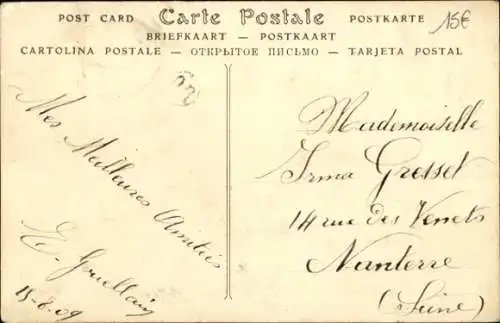 POST CARD Carte Postale POSTKARTE
BRIEFKAART — POSTKAART
CARTOLINA POSTALE — ОТКРЫТОЕ ПИСЬМО — TARJETA POSTAL
15€
Mes Meilleures Amitiés
15-8-09
Mademoiselle
Irma Grosset
14 rue des Venets
Nanterre
(Seine)